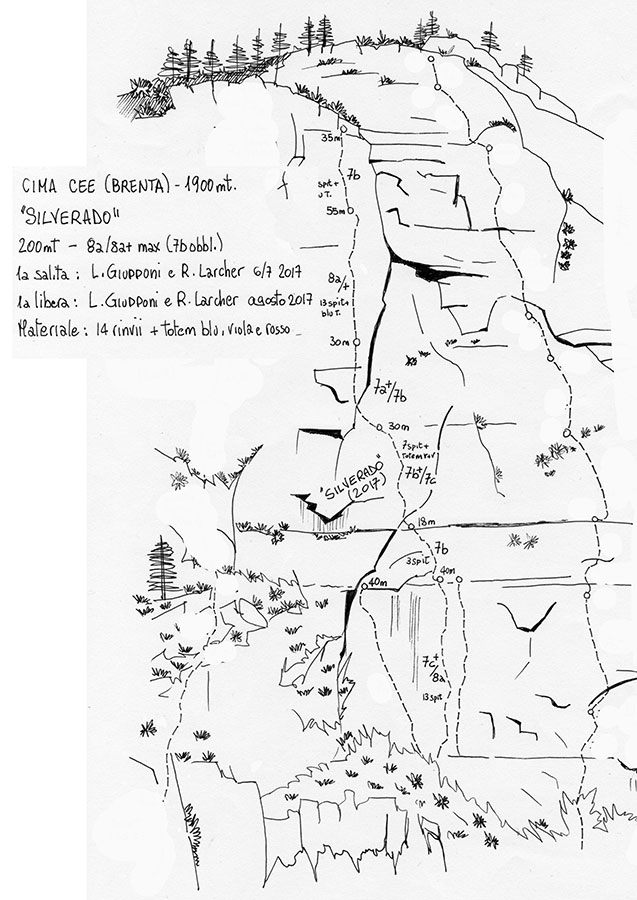 CIMA CEE (BRENTA) - 1900 mt.
"SILVERADO"
200mt - 8a/8a+ max (7b obbl.)
1a salita: L. GIUPPONI e R. LARCHER 6/7 2017
1a libera: L. GIUPPONI e R. LARCHER agosto 2017
Materiale: 14 rinvii + totem blu, viola e rosso
35m
7b
spit +
55m
8a/+
13 spit+
blu T.
30m
7a+/7b
30m
7 spit+
7b+/7c
"SILVERADO"
(2017)
18m
7b
3 spit
40m
40m
7c+/8a
13 spit